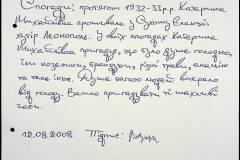 Спогади: протягом 1932-33р.р. Катерина
Михайлівна проживала в Сухому Єланці
хутір Леонополь. З своїх спогадах Катерина
Михайлівна пригадує, що було дуже голодно,
їли козелики, бринзули, різні трави, акацію
та таке інше. Дуже багато людей вмерало
від голоду. Важко пригадувати ті жахливі
часи.
12.08.2008. Підпис: